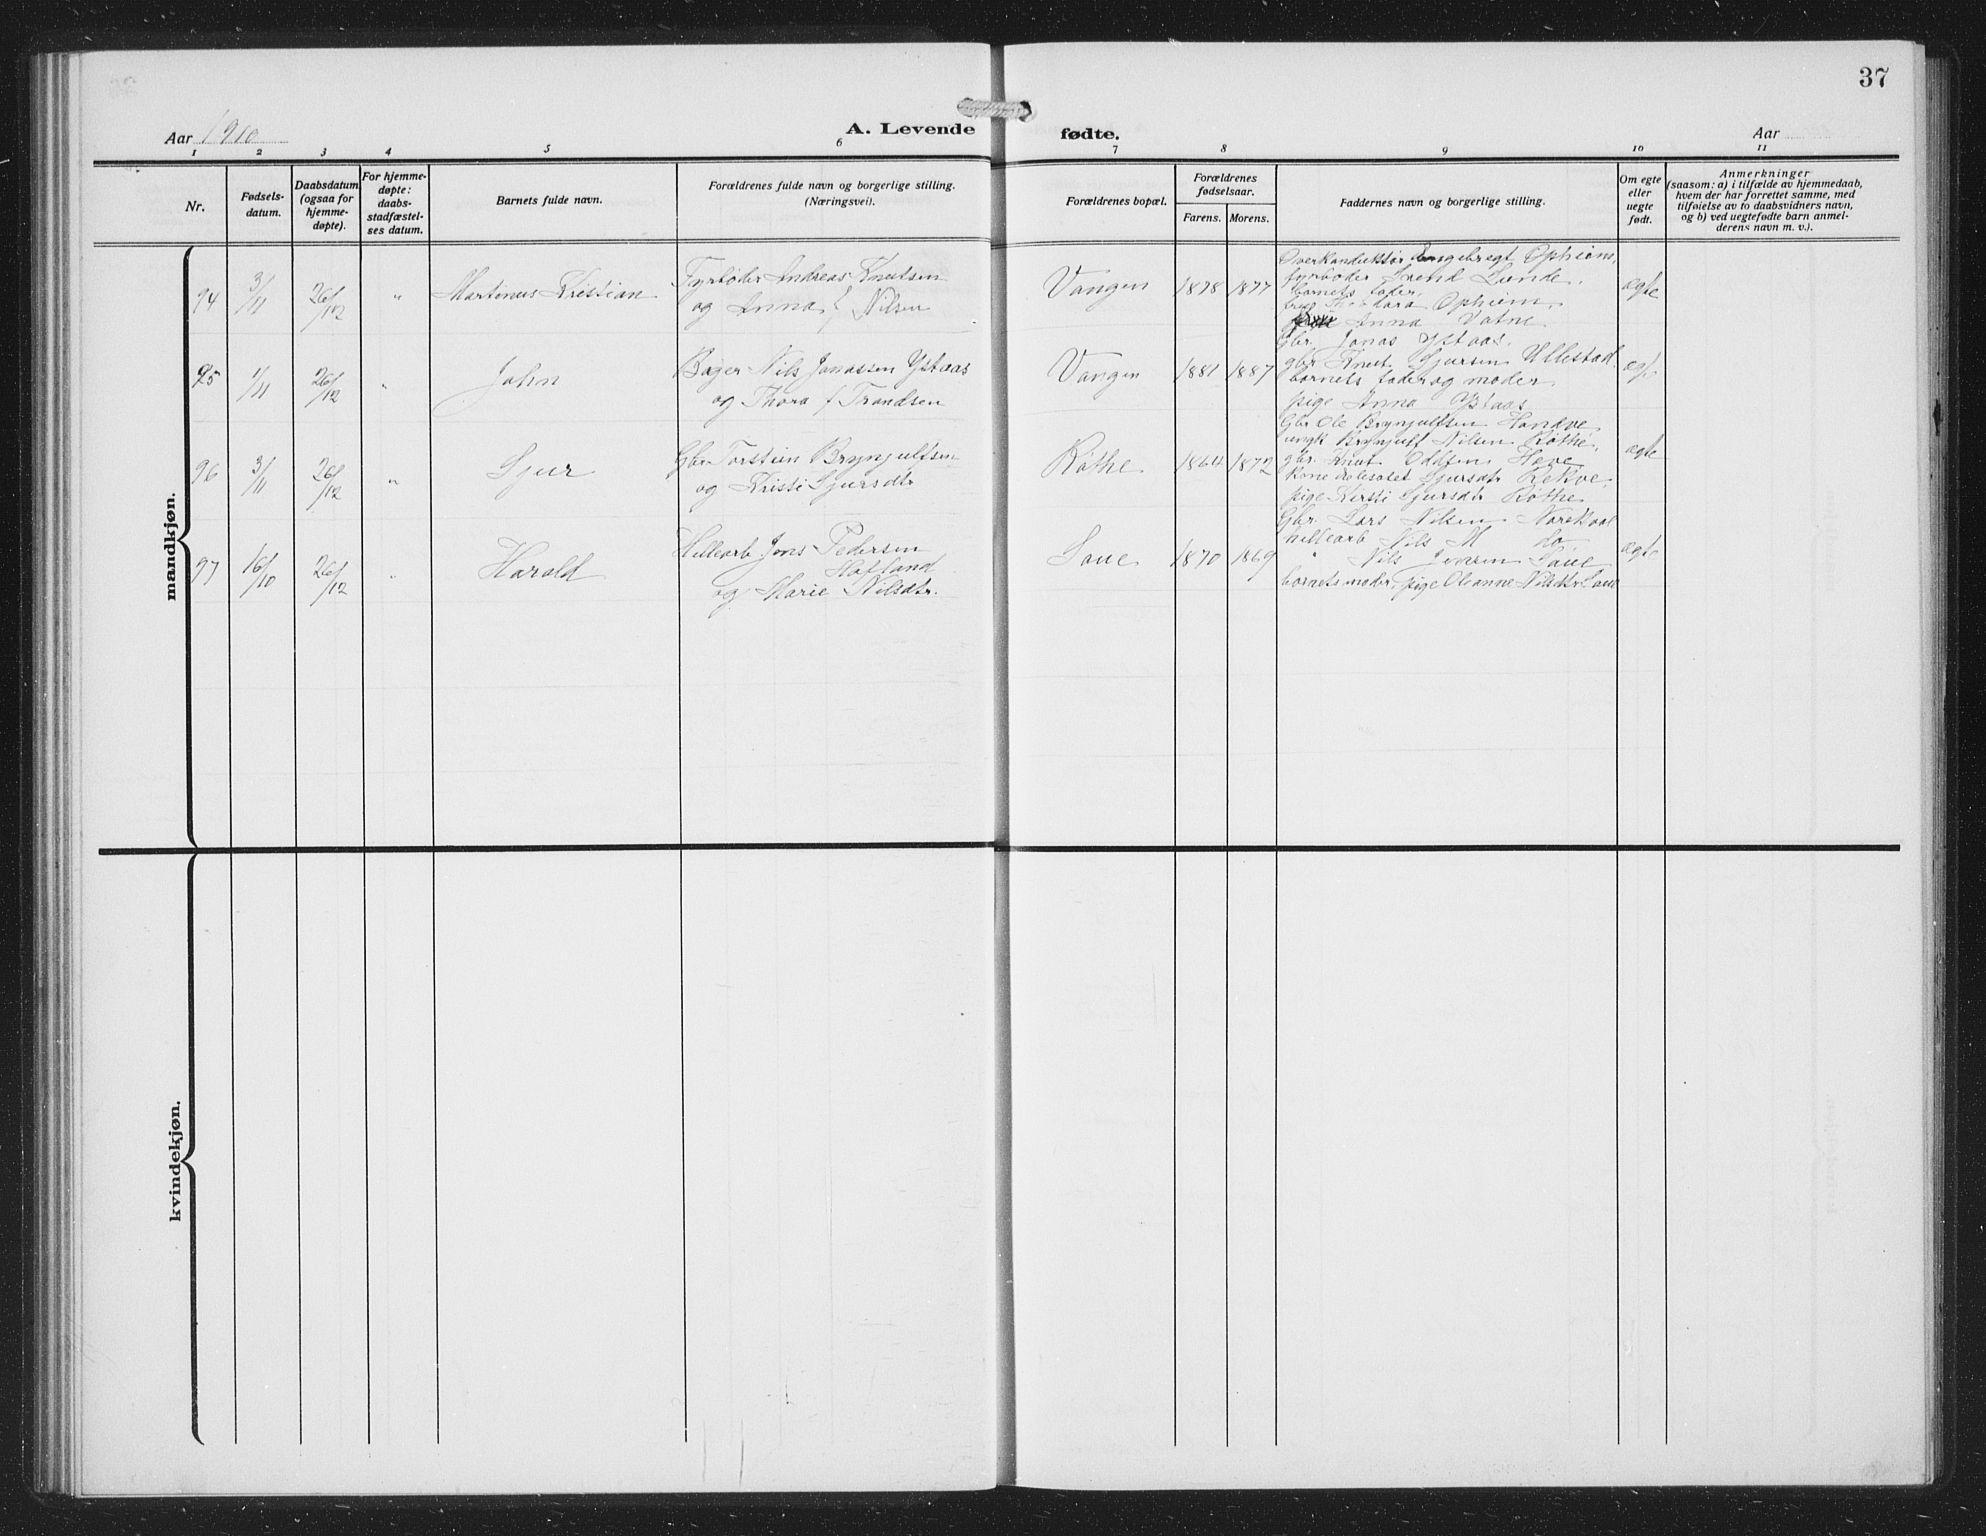 37
Aar 1910
A. Levende fødte.
Aar
1 2 3 4 5 6 7 8 9 10 11
Nr.
Fødsels-
datum.
Daabsdatum
(ogsaa for
hjemme-
døpte).
For hjemme-
døpte:
daabs-
stadfæstel-
ses datum.
Barnets fulde navn.
Forældrenes fulde navn og borgerlige stilling.
(Næringsvei).
Forældrenes bopæl.
Forældrenes
fødselsaar.
Farens. Morens.
Faddernes navn og borgerlige stilling.
Om egte
eller
uegte
født.
Anmerkninger
(saasom: a) i tilfælde av hjemmedaab,
hvem der har forrettet samme, med
tilføielse av to daabsvidners navn,
og b) ved uegtefødte barn anmel-
derens navn m. v.).
mandkjøn.
94 3/11 26/12 " Martinus Kristian
Fyrbøder Andreas Knutsen
og Anna f Nilsen
Vangen 1878 1877
Overkonduktør Engebregt Opheim,
fyrbøder Svend Lunde,
barnets fader,
Thodora Opheim
Anna Vatne
egte
95 1/11 26/12 " John
Bager Nils Jonassen Ystaas
og Thora f Trondsen
Vangen 1881 1887
Gbr. Jonas Ystaas,
gbr Knut Sjursen Ullestad,
barnets fader og moder
pige Anna Ystaas
egt.
96 3/11 26/12 " Sjur
Gbr Torstein Brynjulfsen
og Kristi Sjursdtr
Røthe 1864 1872
Gbr Ole Brynjulfsen Hondve
ungk Brynjulf Nilsen Røthe,
gbr. Knut Oddsen Hove
Kone Sjursdtr Rekve,
pige Kirsti Sjursdtr Røthe
egte
97 16/10 26/12 " Harald
Hellearb Jens Pedersen
Hofland
og Marie Nilsdtr.
Saue 1870 1869
Gbr. Lars Nilsen
hellearb Nils M do
" Nils Iversen Saue
barnets moder, pige Oleanne Nilsdtr Saue
egte
kvindekjøn.